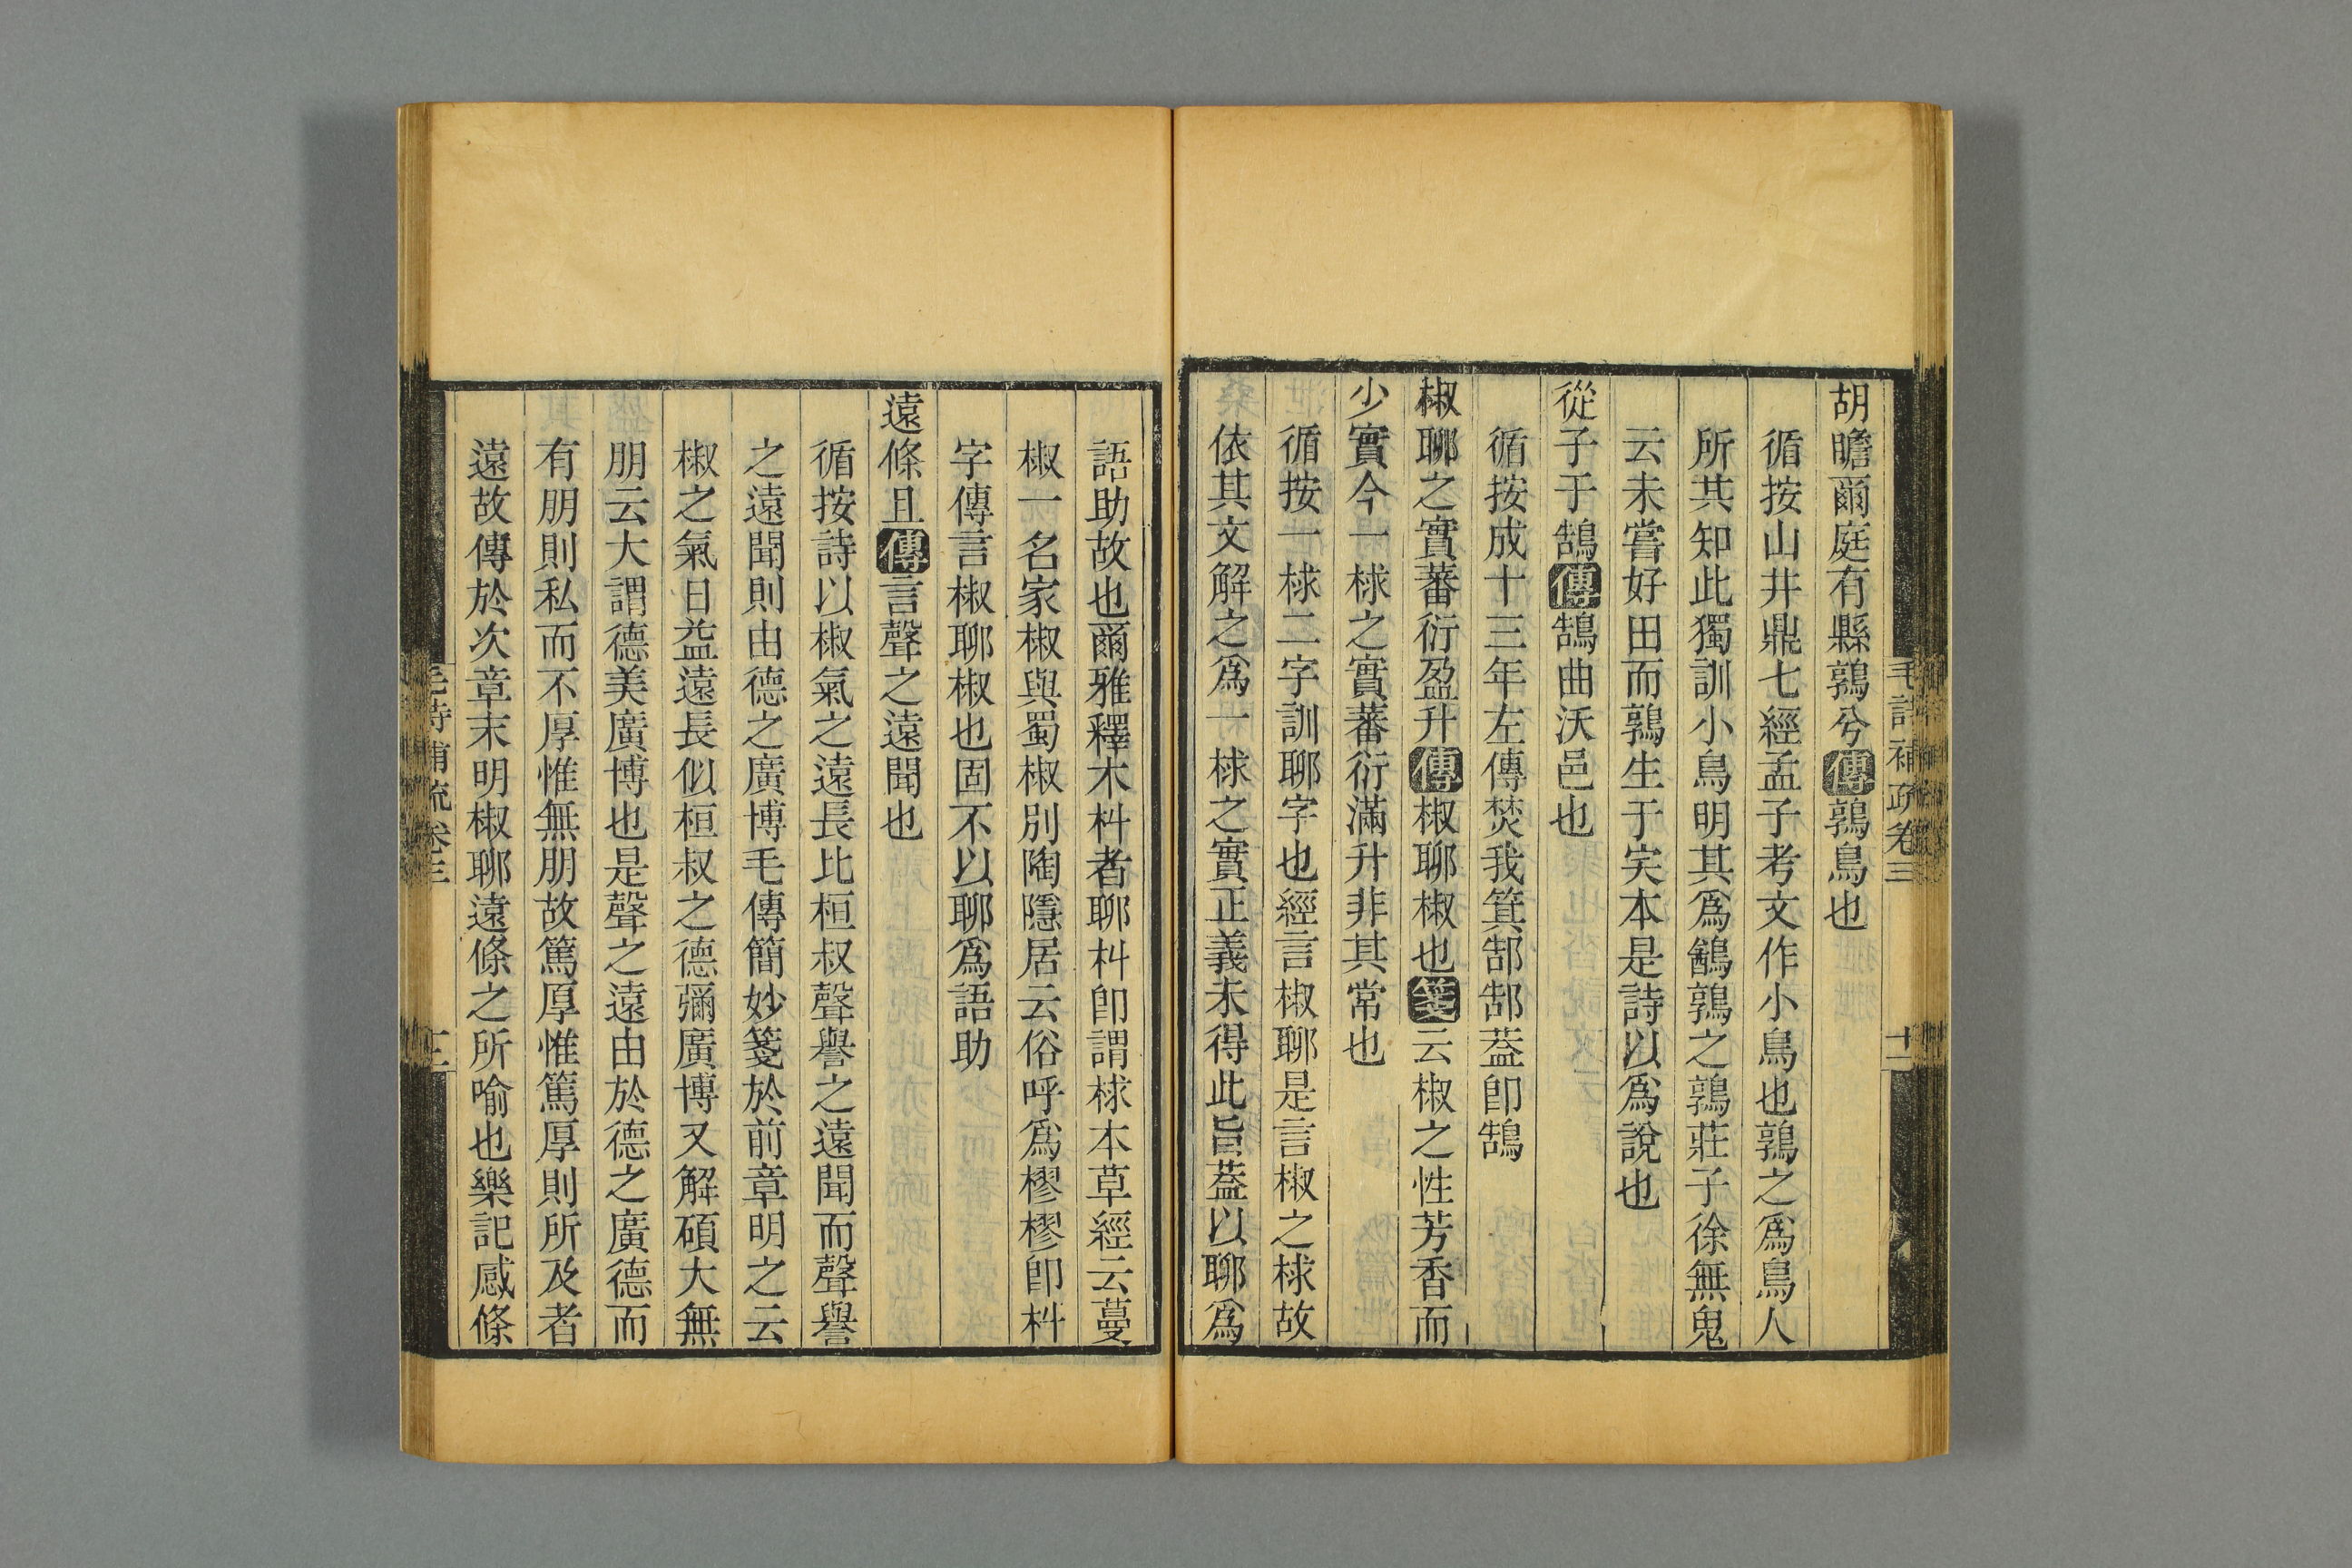 毛詩補疏卷三
十二
胡瞻爾庭有縣鶉兮傳鶉鳥也
循按山井鼎七經孟子考文作小鳥也鶉之爲鳥人
所其知此獨訓小鳥明其爲鷂鶉之鶉莊子徐無鬼
云未嘗好田而鶉生于宎本是詩以爲說也
從子于鵠傳鵠曲沃邑也
循按成十三年左傳焚我箕郜郜蓋卽鵠
椒聊之實蕃衍盈升傳椒聊椒也箋云椒之性芳香而
少實今一梂之實蕃衍滿升非其常也
循按一梂二字訓聊字也經言椒聊是言椒之梂故
依其文解之爲一梂之實正義未得此旨蓋以聊爲
語助故也爾雅釋木朻者聊朻卽謂梂本草經云蔓
椒一名家椒與蜀椒別陶隱居云俗呼爲樛樛卽朻
字傳言椒聊椒也固不以聊爲語助
遠條且傳言聲之遠聞也
循按詩以椒氣之遠長比桓叔聲譽之遠聞而聲譽
之遠聞則由德之廣博毛傳簡妙箋於前章明之云
椒之氣日益遠長似桓叔之德彌廣博又解碩大無
朋云大謂德美廣博也是聲之遠由於德之廣德而
有朋則私而不厚惟無朋故篤厚惟篤厚則所及者
遠故傳於次章末明椒聊遠條之所喻也樂記感條
毛詩補疏卷三